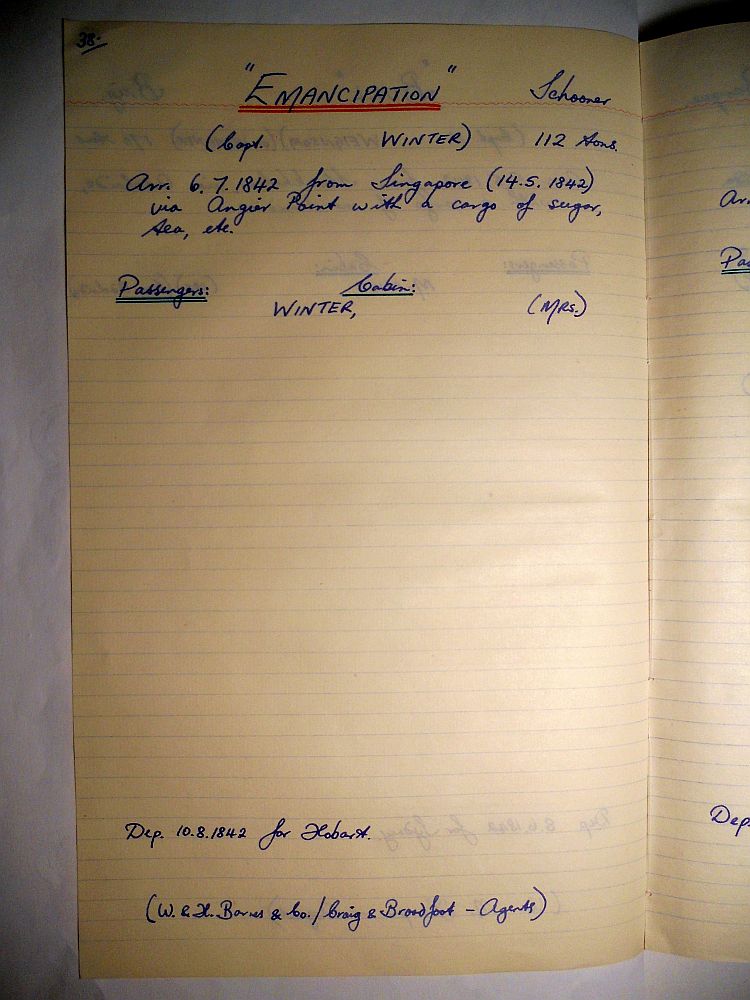 38.
"EMANCIPATION" Schooner
(Capt. WINTER) 112 tons.
Arr. 6.7.1842 from Singapore (14.5.1842)
via Angier Point with a cargo of sugar,
tea, etc.
Passengers: Cabin:
WINTER, (MRS.)
Dep. 10.8.1842 for Hobart.
(W. & H. Barnes & Co. / Craig & Broadfoot - Agents)
Ar
Pas
Dep.